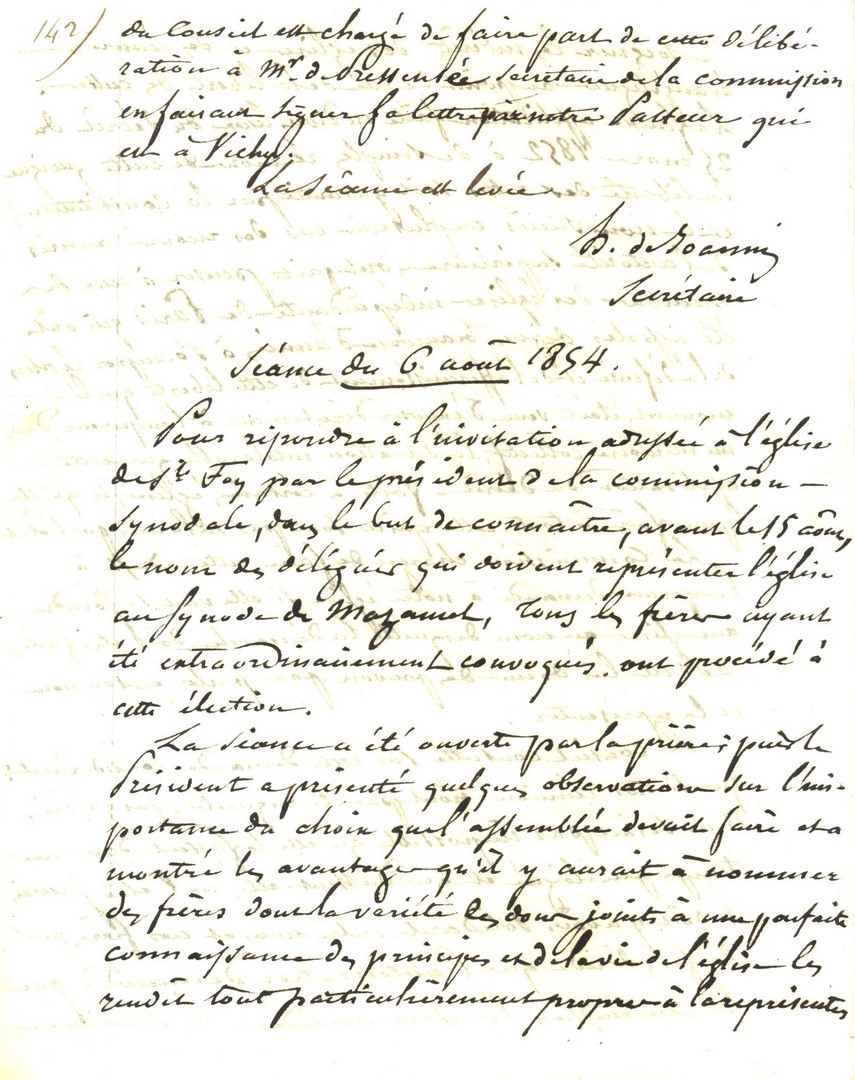 142)
du Conseil est chargé de faire part de cette délibé-
ration à Mr de Pressensée secrétaire de la commission
en faisant signer sa lettre par notre Pasteur qui
est à Vichy.
La séance est levée
de Joannis
Secrétaire
Séance du 6 août 1854.
Pour répondre à l'invitation adressée à l'église
de Ste Foy par le président de la commission —
Synodale, dans le but de connaître, avant le 15 août,
le nom des délégués qui doivent représenter l'église
au Synode de Mazamet, tous les frères ayant
été extraordinairement convoqués, ont procédé à
cette élection.
La séance a été ouverte par la prière; puis le
Président a présenté quelques observations sur l'im-
portance du choix que l'assemblée devait faire et a
montré les avantages qu'il y aurait à nommer
des frères dont la variété des dons joints à une parfaite
connaissance des principes et de la vie de l'église les
rendit tout particulièrement propres à la représenter